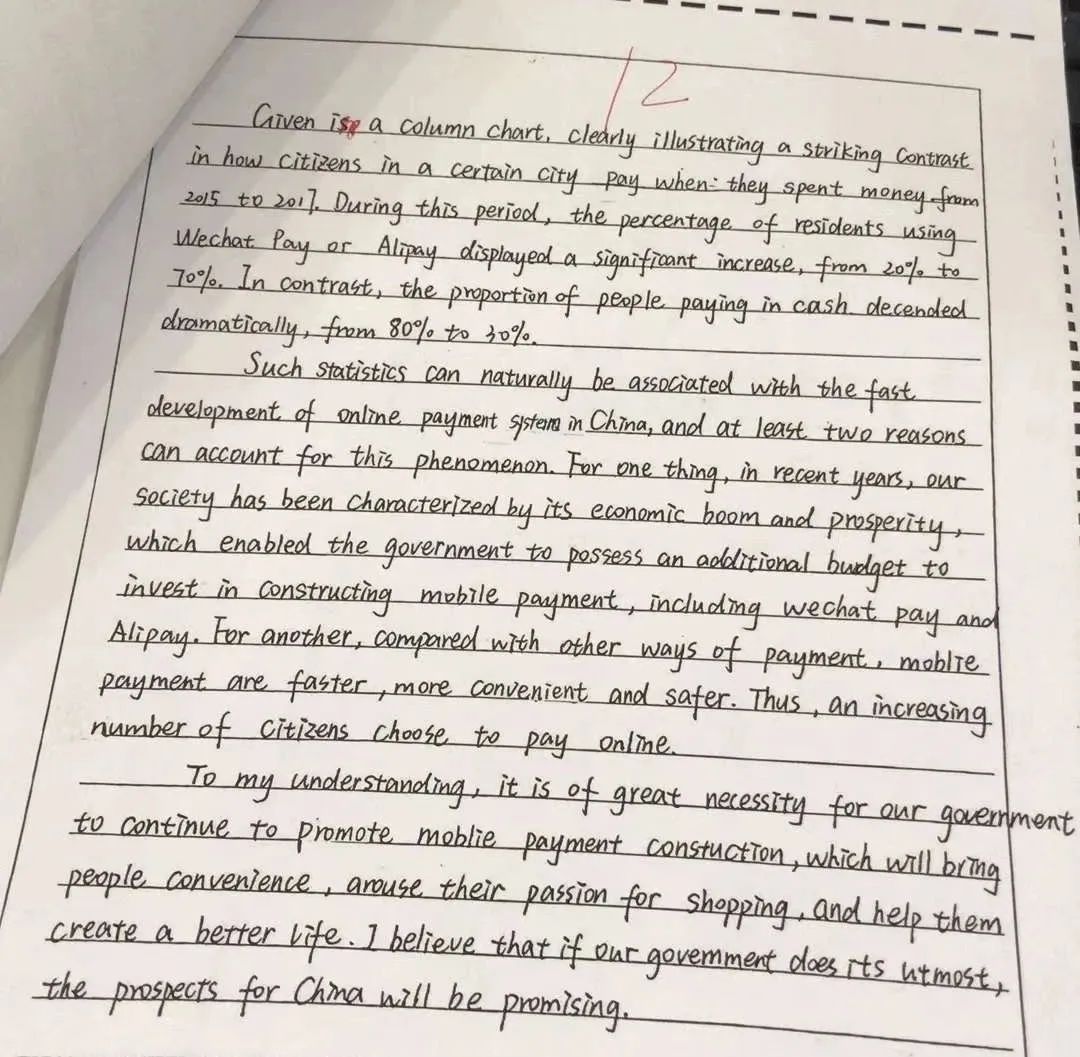 12
Given is a column chart, clearly illustrating a striking contrast
in how citizens in a certain city pay when they spent money from
2015 to 2017. During this period, the percentage of residents using
Wechat Pay or Alipay displayed a significant increase, from 20% to
70%. In contrast, the proportion of people paying in cash decended
dramatically, from 80% to 30%.
Such statistics can naturally be associated with the fast
development of online payment system in China, and at least two reasons
can account for this phenomenon. For one thing, in recent years, our
society has been characterized by its economic boom and prosperity,
which enabled the government to possess an additional budget to
invest in constructing mobile payment, including wechat pay and
Alipay. For another, compared with other ways of payment, moblie
payment are faster, more convenient and safer. Thus, an increasing
number of citizens choose to pay online.
To my understanding, it is of great necessity for our government
to continue to promote moblie payment constuction, which will bring
people convenience, arouse their passion for shopping, and help them
create a better life. I believe that if our government does its utmost,
the prospects for China will be promising.